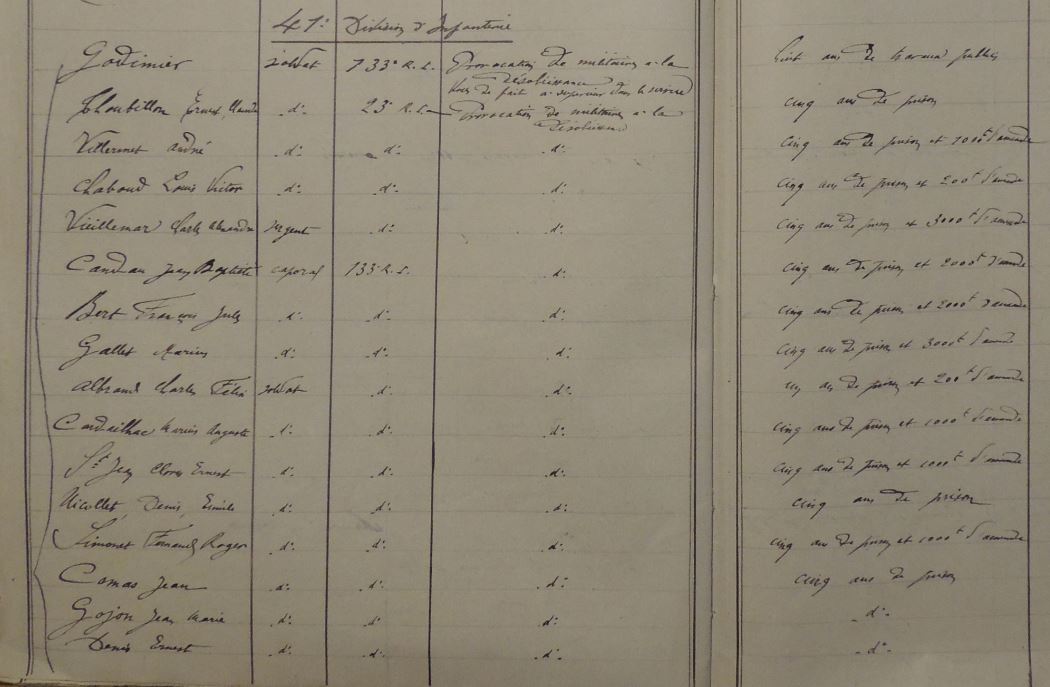 41e Division d'Infanterie
Godimier soldat 133e R.I. Provocation de militaires à la désobéissance &
Voies de fait à supérieur dans le service
huit ans de travaux publics
Ernest d°. 23e R.I. Provocation de militaires à la
désobéissance
cinq ans de prison
Villermet André d°. d°. d°. cinq ans de prison et d'amende
Chabaud Louis Victor d°. d°. d°. cinq ans de prison et 200f d'amende
Vieillemar Charles Alexandre sergent d°. d°. cinq ans de prison et 3000f d'amende
Candau Jean Baptiste caporal 133e R.I. d°. cinq ans de prison et 2000f d'amende
Bert François Jules d°. d°. d°. cinq ans de prison et 2000f d'amende
Gallet Marius d°. d°. d°. cinq ans de prison et 3000f d'amende
Albrand Charles Félix soldat d°. d°. ans de prison et 200f d'amende
Cardailhac Marius Auguste d°. d°. d°. cinq ans de prison et 1000f d'amende
St Jean Ernest d°. d°. d°. cinq ans de prison et 1000f d'amende
Nicollet, Denis, Emile d°. d°. d°. cinq ans de prison
Simonet Fernand Roger d°. d°. d°. cinq ans de prison et 1000f d'amende
Comas Jean d°. d°. d°. cinq ans de prison
Gojon Jean Marie d°. d°. d°. d°.
Denis Ernest d°. d°. d°. d°.